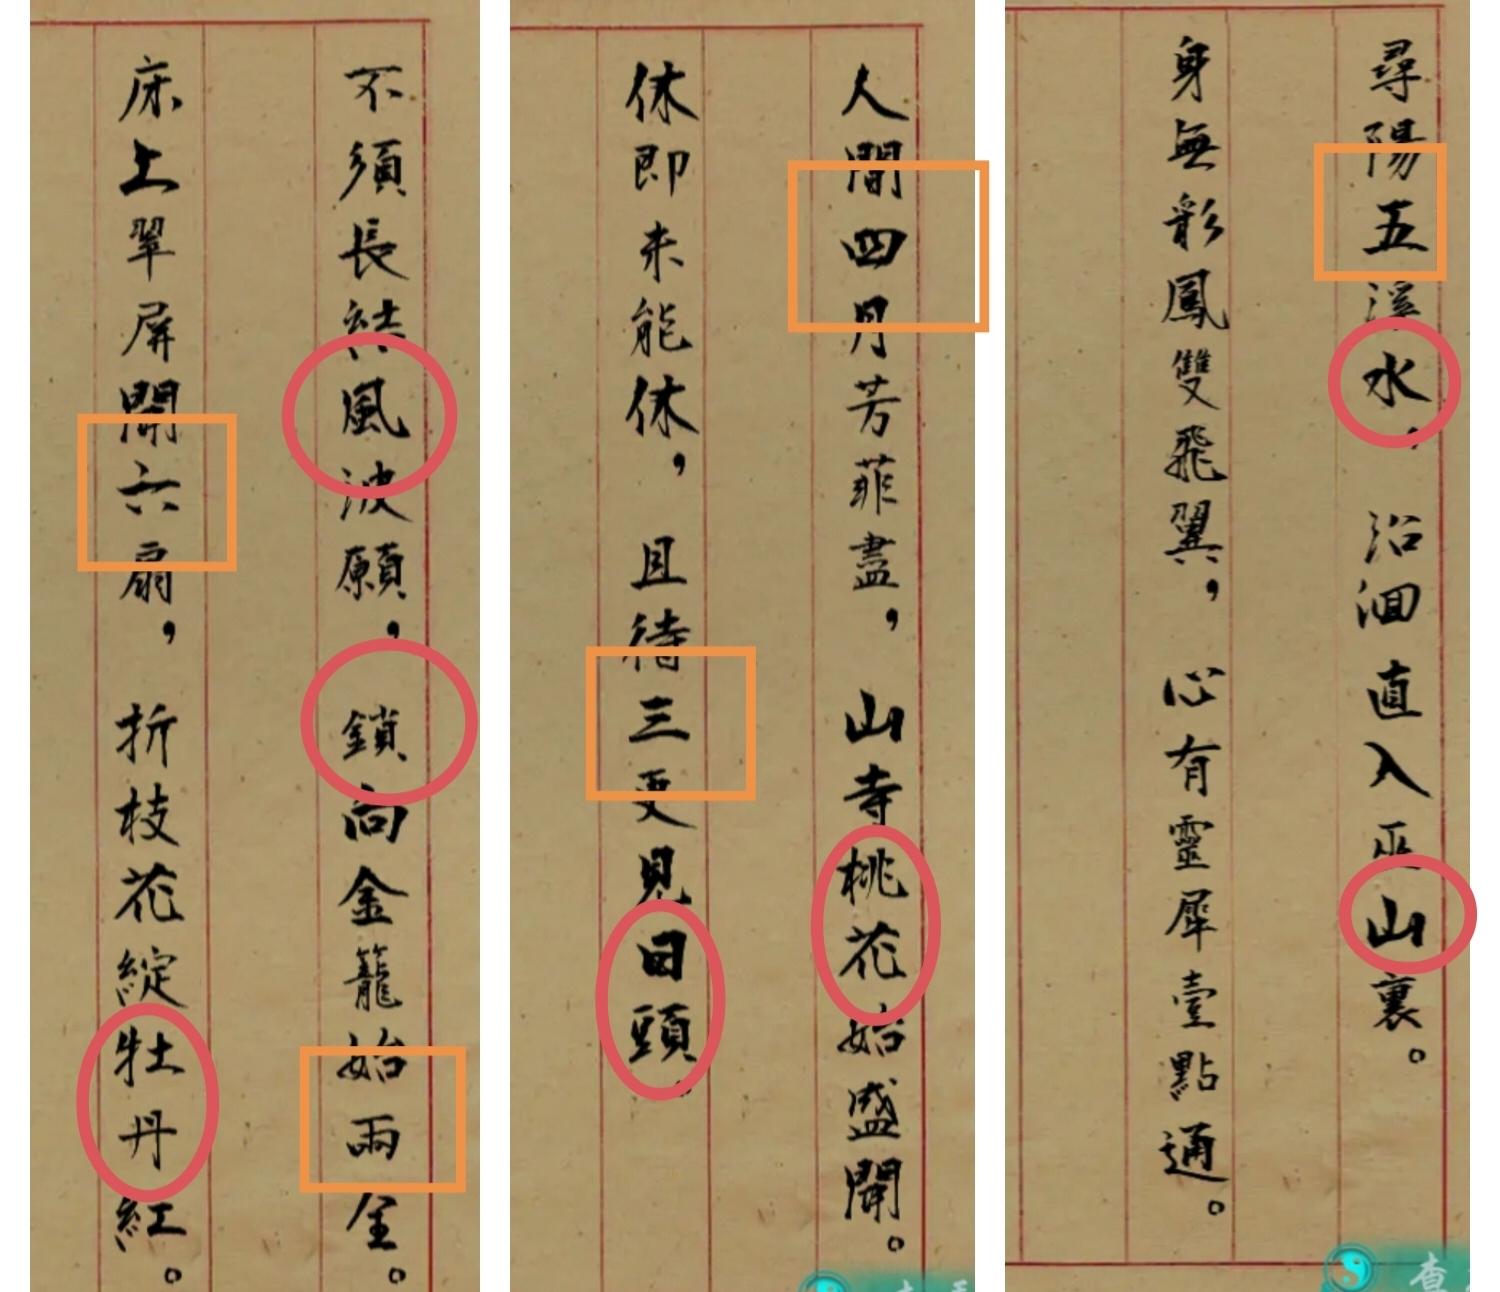 不須長結風波願，鎖向金籠始兩全。
床上翠屏開六扇，折枝花綻牡丹紅。
人間四月芳菲盡，山寺桃花始盛開。
休即未能休，且待三更見日頭。
尋陽五溪水，沿洄直入巫山裏。
身無彩鳳雙飛翼，心有靈犀壹點通。
查